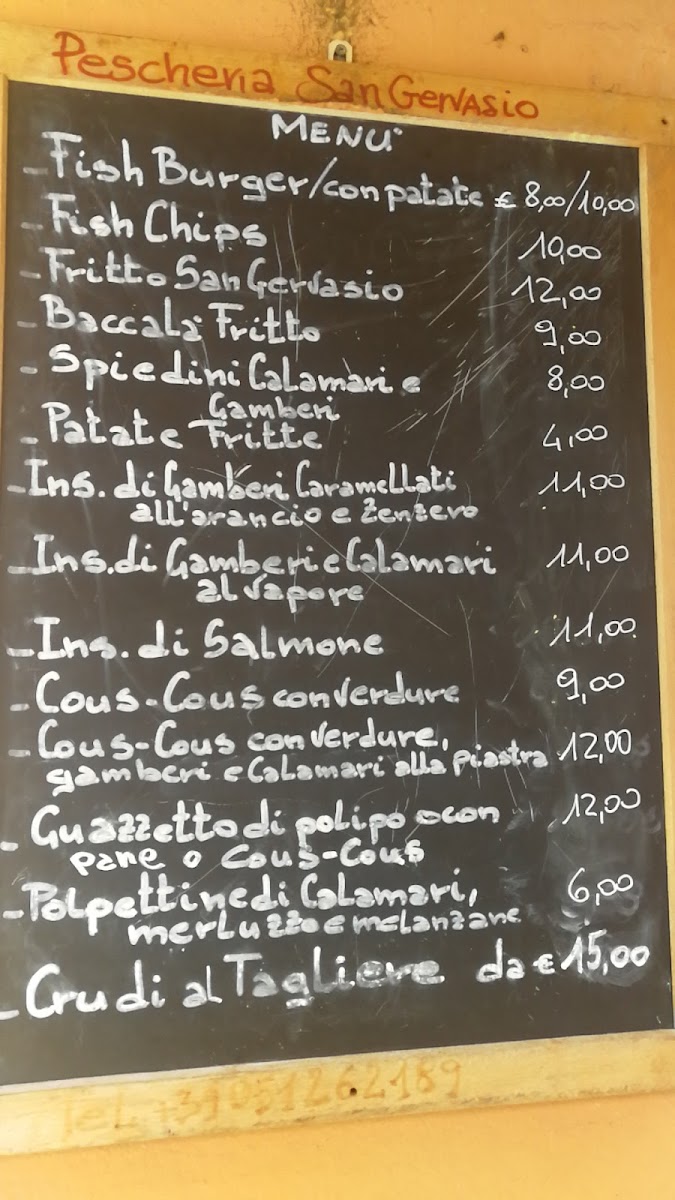 Pescheria San Gervasio
MENU'
- Fish Burger/con patate € 8,00/10,00
- Fish Chips 10,00
- Fritto San Gervasio 12,00
- Baccalà Fritto 9,00
- Spiedini Calamari e 8,00
Gamberi
- Patate Fritte 4,00
- Ins. di Gamberi Caramellati 11,00
all'arancio e Zenzero
- Ins. di Gamberi e Calamari 11,00
al vapore
- Ins. di Salmone 11,00
- Cous-Cous con verdure 9,00
- Cous-Cous con verdure, 12,00
gamberi e Calamari alla piastra
- Guazzetto di polipo o con 12,00
pane o Cous-Cous
- Polpettine di Calamari, 6,00
merluzzo e melanzane
- Crudi al Tagliere da € 15,00
Tel. +39051262189